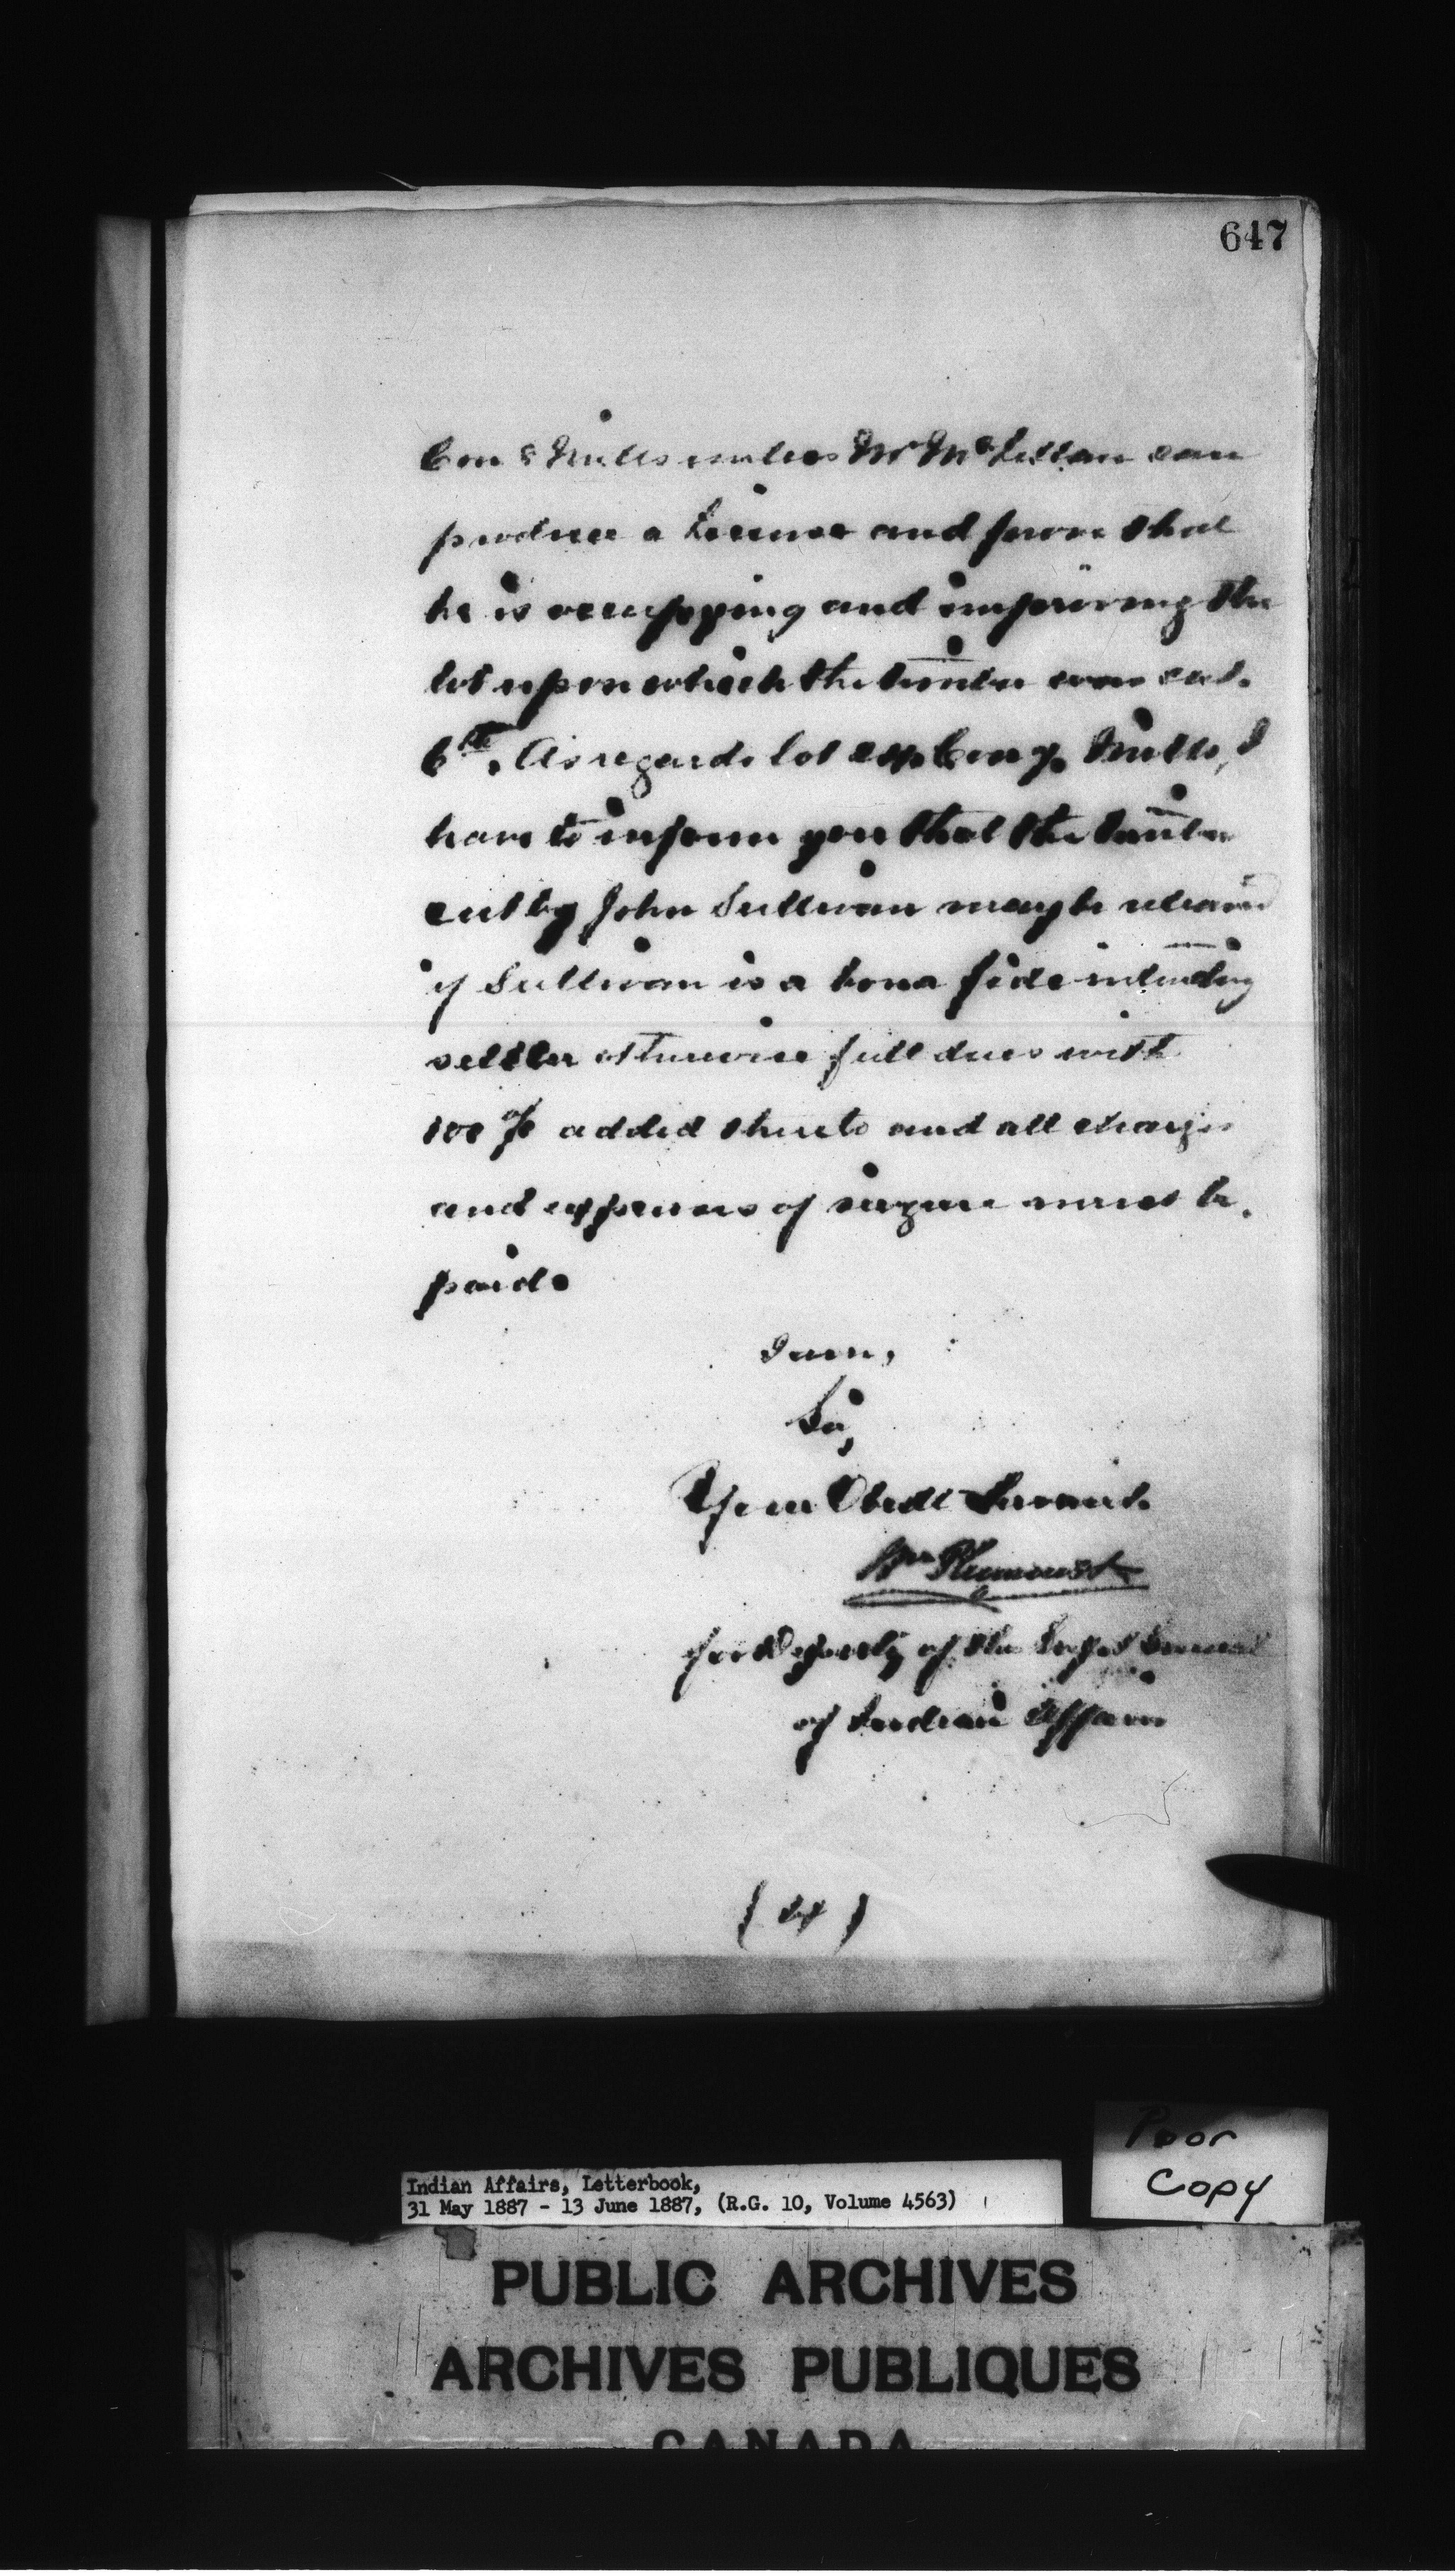 647
Con 8 Mills unless Mr McLellan can
produce a License and prove that
he is occupying and improving the
lot upon which the timber was cut.
6th. As regards lot Con 7. Mills, I
have to inform you that the timber
cut by John Sullivan may be released
if Sullivan is a bona fide intending
settler otherwise full dues with
100 % added thereto and all charges
and expenses of seizure must be
paid.
I am,
Sir,
Your Obedt Servant.
Wm Plummer
for Deputy of the Supt General
of Indian Affairs
(4)
Poor
Copy
Indian Affairs, Letterbook,
31 May 1887 - 13 June 1887, (R.G. 10, Volume 4563)
PUBLIC ARCHIVES
ARCHIVES PUBLIQUES
CANADA